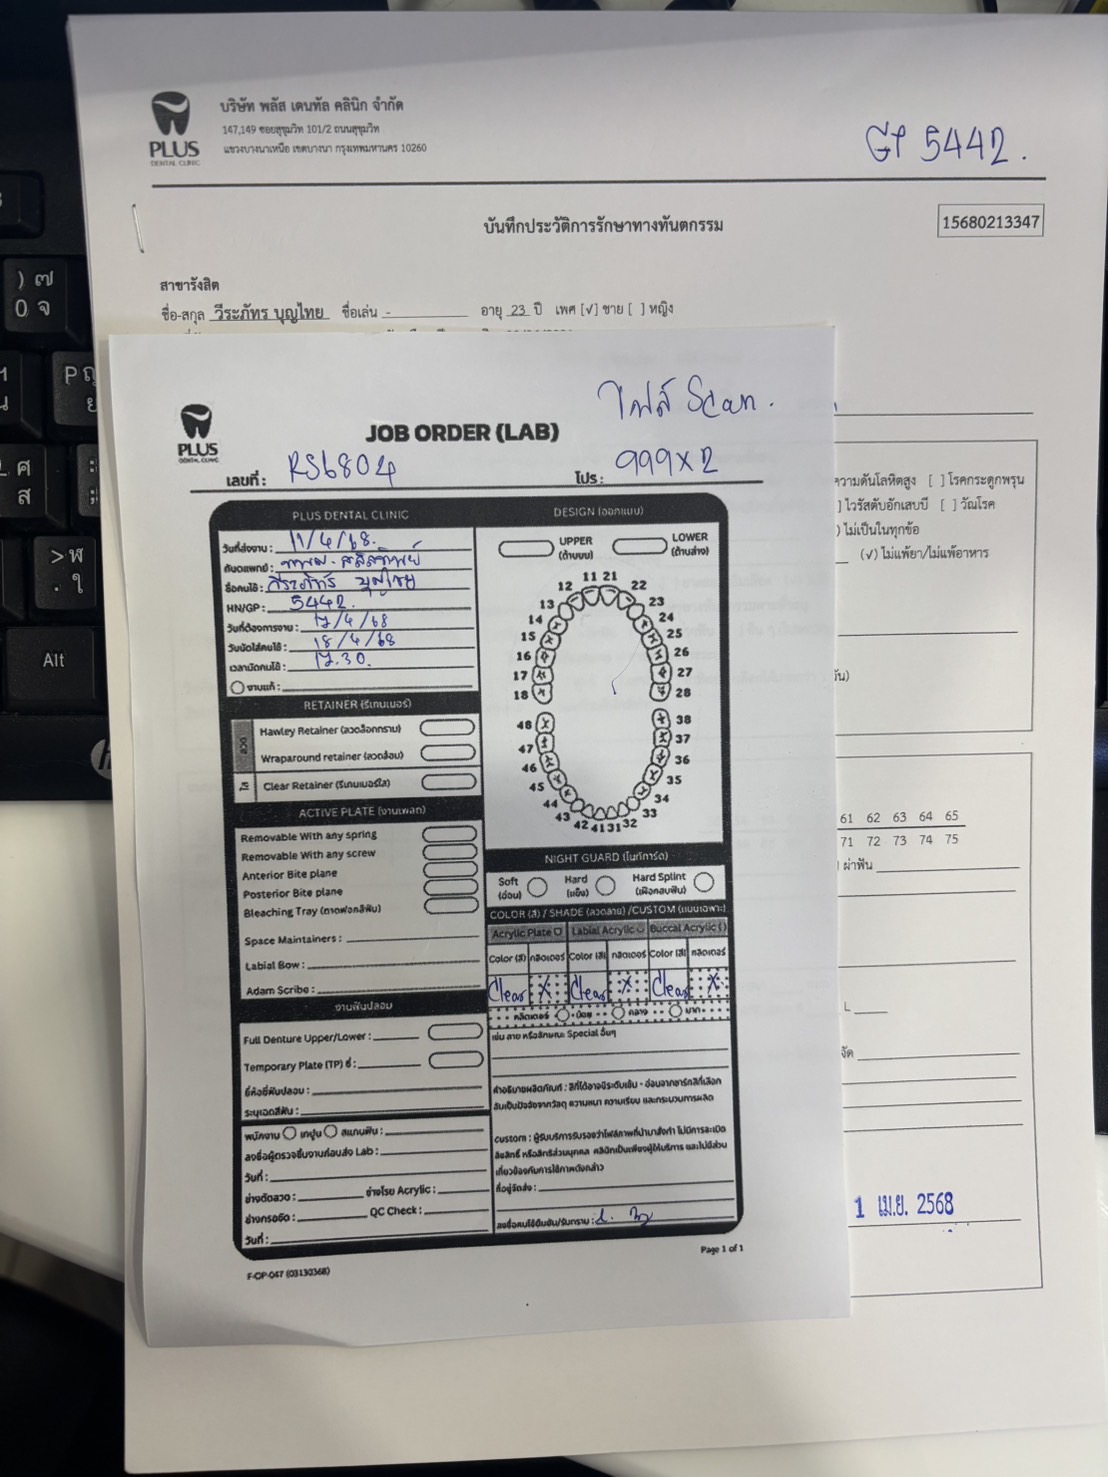 บริษัท พลัส เดนทัล คลินิก จำกัด
147,149 ซอยสุขุมวิท 101/2 ถนนสุขุมวิท
แขวงบางนาเหนือ เขตบางนา กรุงเทพมหานคร 10260
PLUS
DENTAL CLINIC
GP 5442.
บันทึกประวัติการรักษาทางทันตกรรม
15680213347
สาขารังสิต
ชื่อ-สกุล วีระภัทร บุญไทย ชื่อเล่น - อายุ 23 ปี เพศ [√] ชาย [ ] หญิง
ไฟล์ Scan.
PLUS
DENTAL CLINIC
JOB ORDER (LAB)
เลขที่ : RS6804 โปร : 999x2
PLUS DENTAL CLINIC
วันที่ส่งงาน : 11/4/68.
ทันตแพทย์ :
ชื่อคนไข้ : วีระภัทร บุญไทย
HN/GP : 5442.
วันที่ต้องการงาน : 17/4/68
วันนัดใส่คนไข้ : 18/4/68
เวลานัดคนไข้ : 17.30.
งานแก้ :
RETAINER (รีเทนเนอร์)
ลวด
Hawley Retainer (ลวดล็อกกราม)
Wraparound retainer (ลวดอ้อม)
ใส
Clear Retainer (รีเทนเนอร์ใส)
ACTIVE PLATE (งานเพลท)
Removable With any spring
Removable With any screw
Anterior Bite plane
Posterior Bite plane
Bleaching Tray (ถาดฟอกสีฟัน)
Space Maintainers :
Labial Bow :
Adam Scribe :
งานฟันปลอม
Full Denture Upper/Lower :
Temporary Plate (TP) ซี่ :
ยี่ห้อซี่ฟันปลอม :
ระบุเฉดสีฟัน :
พนักงาน เทปูน สแกนฟัน :
ลงชื่อผู้ตรวจชิ้นงานก่อนส่ง Lab :
วันที่ :
ช่างดัดลวด : ช่างโรย Acrylic :
ช่างกรอขัด : QC Check :
วันที่ :
F-OP-047 (03130368)
DESIGN (ออกแบบ)
UPPER
(ด้านบน)
LOWER
(ด้านล่าง)
11 21
12 22
13 23
14 24
15 25
16 26
17 27
18 28
48 38
47 37
46 36
45 35
44 34
43 33
42 41 31 32
NIGHT GUARD (ไนท์การ์ด)
Soft
(อ่อน)
Hard
(แข็ง)
Hard Splint
(เฝือกสบฟัน)
COLOR (สี) / SHADE (ลวดลาย) /CUSTOM (แบบเฉพาะ)
Acrylic Plate Labial Acrylic Buccal Acrylic ( )
Color (สี) กลิตเตอร์ Color (สี) กลิตเตอร์ Color (สี) กลิตเตอร์
Clear X Clear X Clear X
กลิตเตอร์ น้อย กลาง มาก
เช่น ลาย หรือลักษณะ Special อื่นๆ
คำอธิบายผลิตภัณฑ์ : สีที่ได้อาจมีระดับเข้ม - อ่อนจากชาร์ทสีที่เลือก
อันเป็นปัจจัยจากวัสดุ ความหนา ความเรียบ และกระบวนการผลิต
custom : ผู้รับบริการรับรองว่าไฟล์ภาพที่นำมาสั่งทำ ไม่มีการละเมิด
ลิขสิทธิ์ หรือสิทธิส่วนบุคคล คลินิกเป็นเพียงผู้ให้บริการ และไม่มีส่วน
เกี่ยวข้องกับการใช้ภาพดังกล่าว
ที่อยู่จัดส่ง :
ลงชื่อคนไข้ยืนยัน/รับทราบ :
Page 1 of 1
ความดันโลหิตสูง [ ] โรคกระดูกพรุน
] ไวรัสตับอักเสบบี [ ] วัณโรค
) ไม่เป็นในทุกข้อ
(√) ไม่แพ้ยา/ไม่แพ้อาหาร
วัน)
61 62 63 64 65
71 72 73 74 75
) ผ่าฟัน
L
จัด
1 เม.ย. 2568
Alt